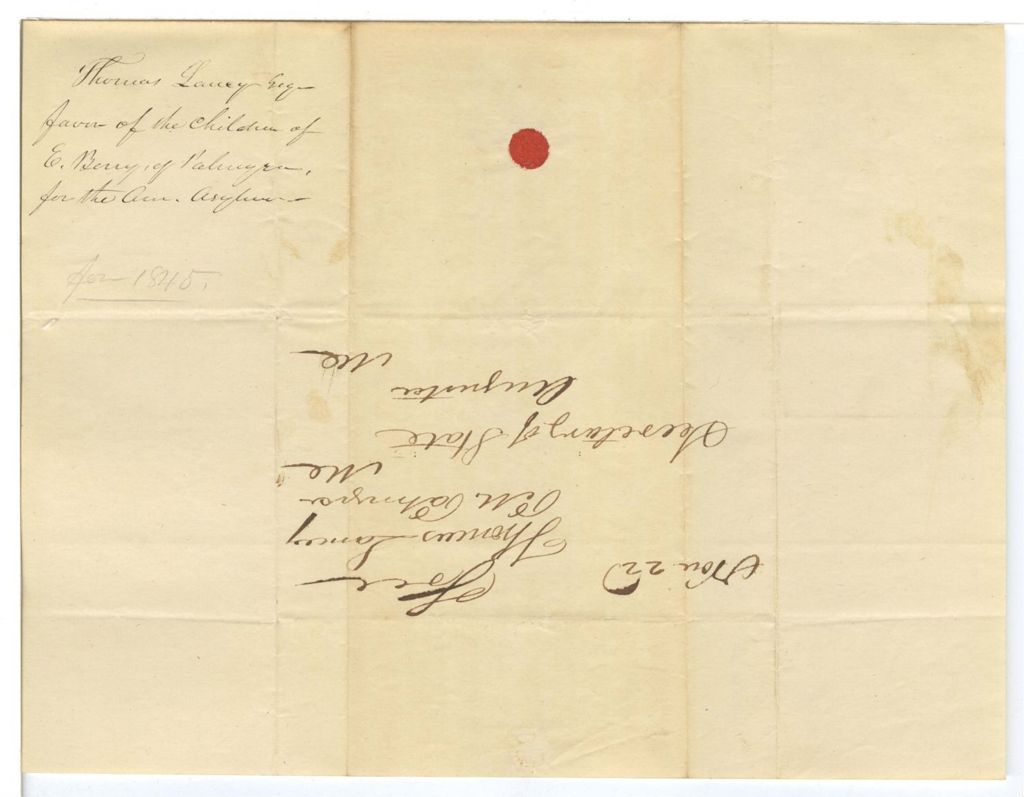 Thomas Lancy Esq
favor of the Children of
E. Berry, of Palmyra,
for the Am. Asylum
for 1845.
Nov 22 Free
Thomas Lancy
P.M. Palmyra
Me
Secretary of State
Augusta
Me